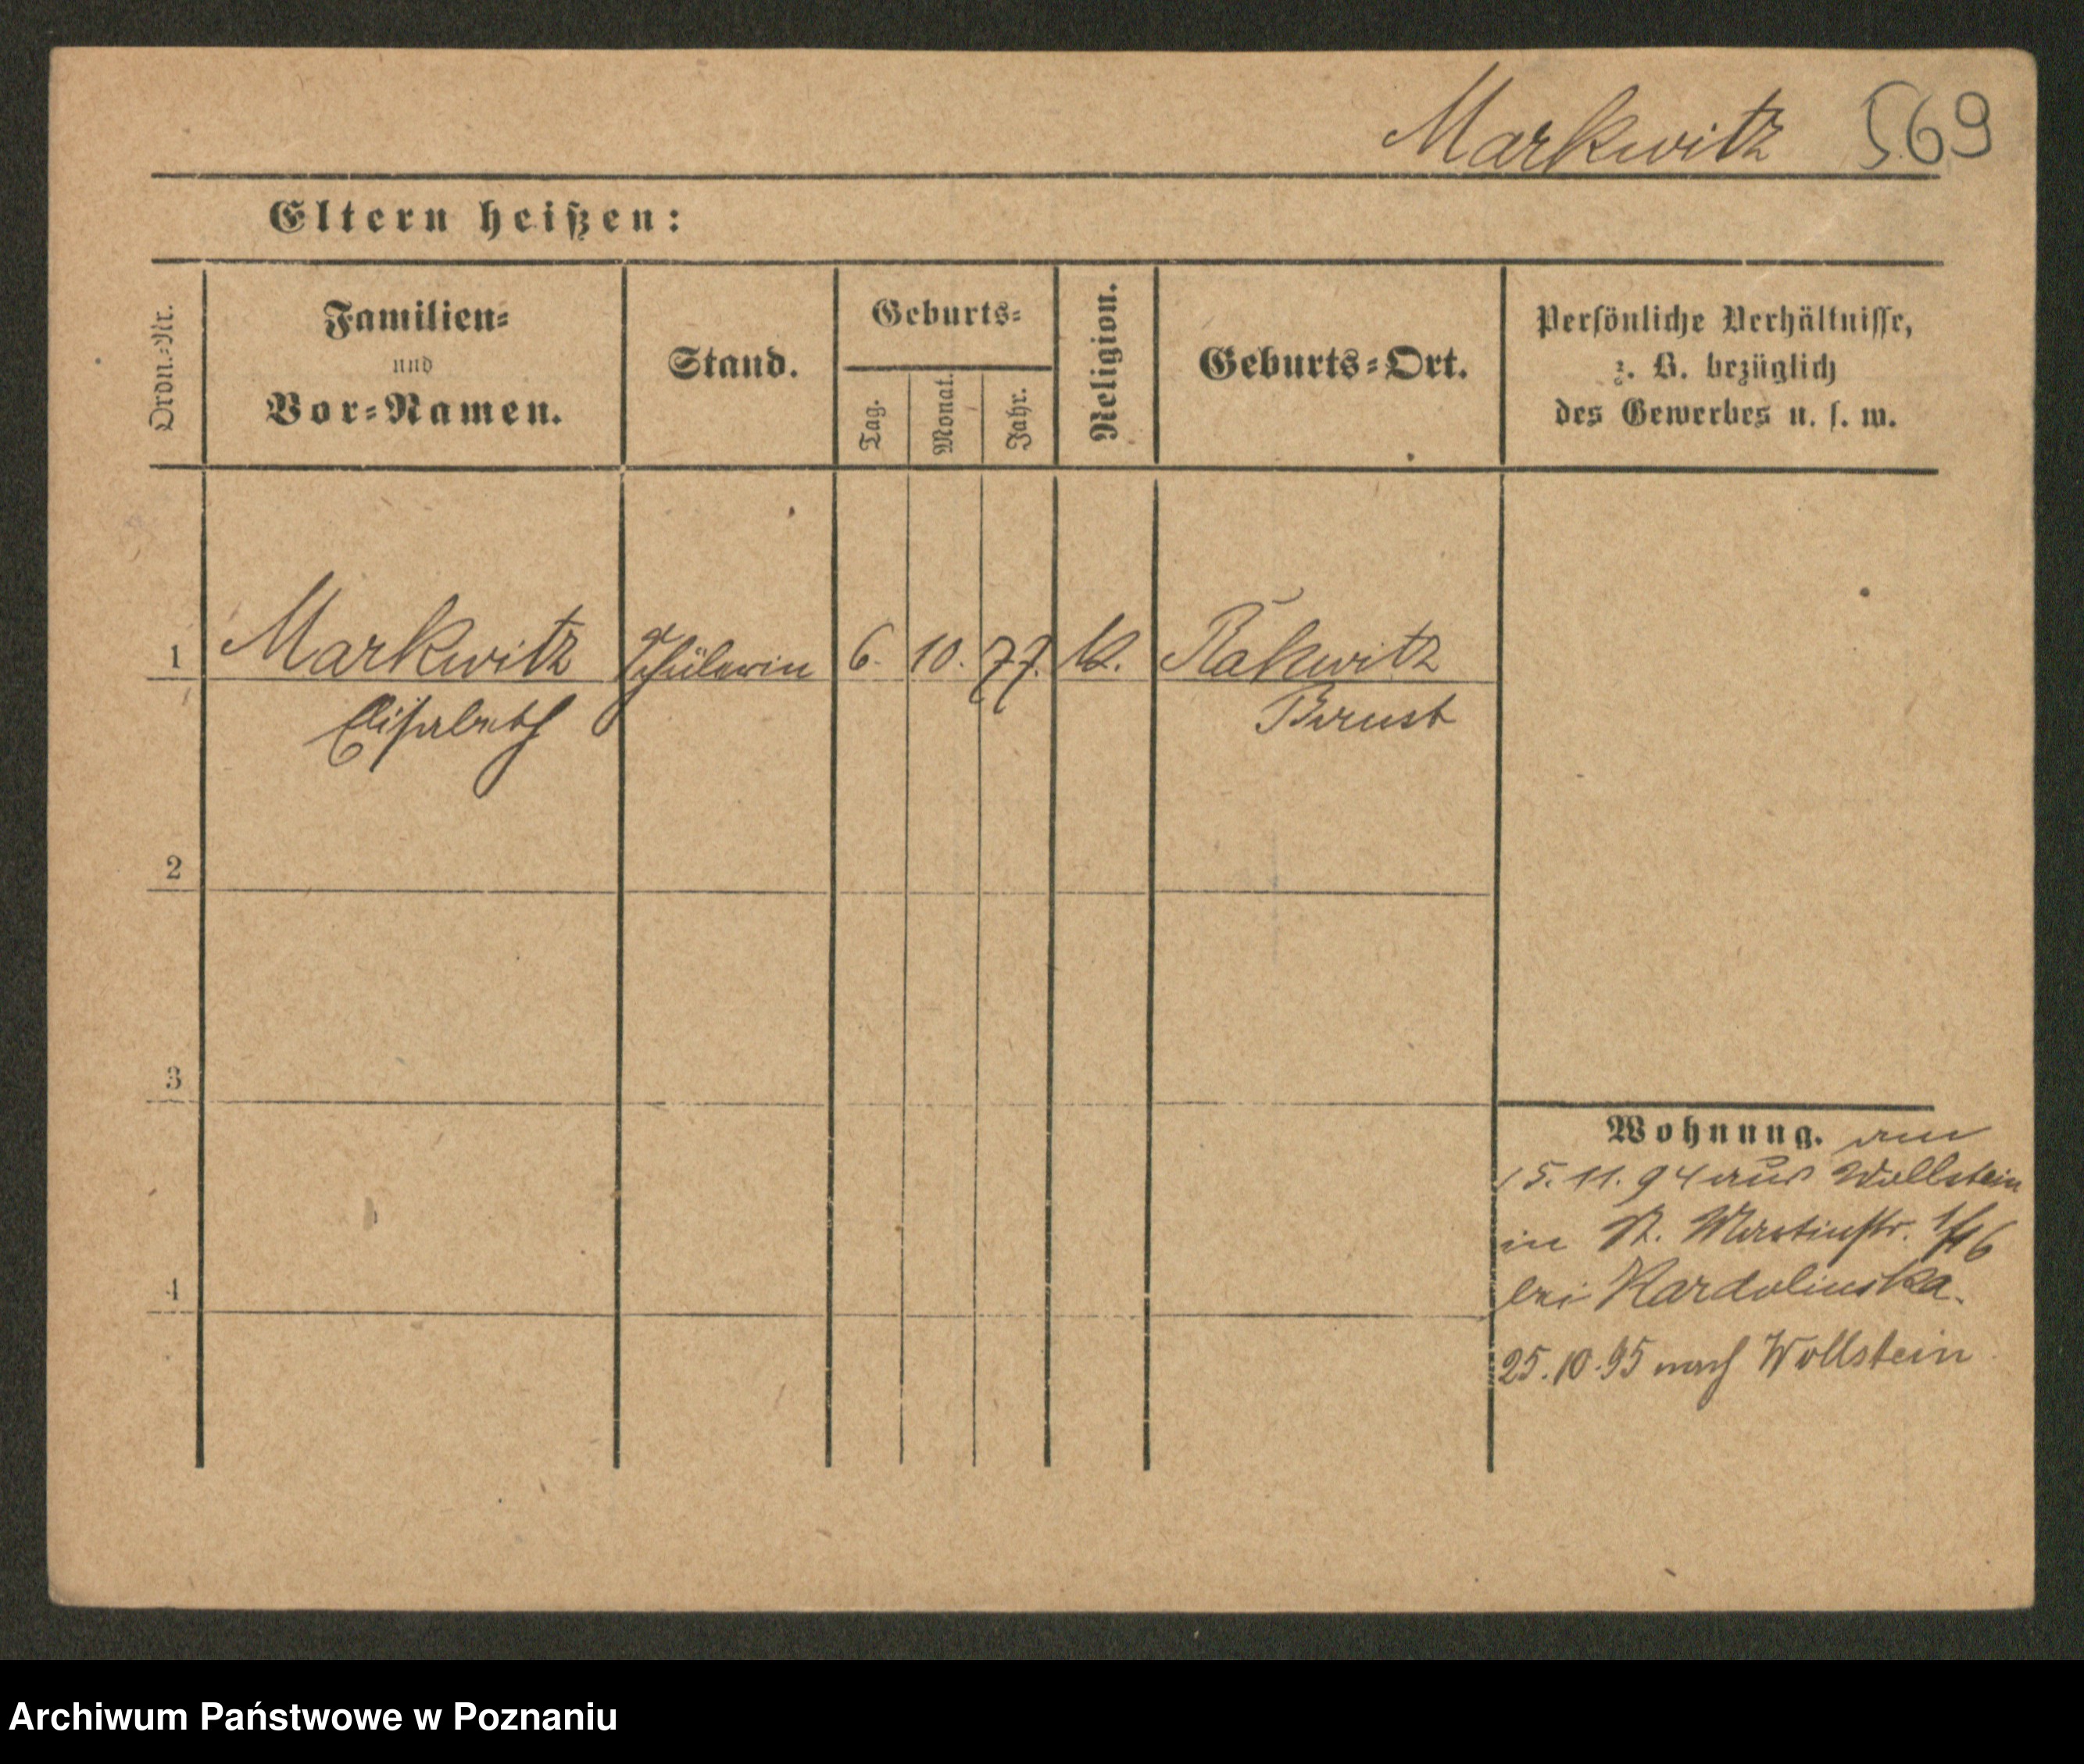 Markwitz 569
Eltern heißen:
Ordn.-Nr.
Familien-
und
Vor-Namen.
Stand.
Geburts-
Tag.
Monat.
Jahr.
Religion.
Geburts-Ort.
Persönliche Verhältnisse,
z. B. bezüglich
des Gewerbes u. s. w.
1 Markwitz Schülerin 6. 10. 77. k. Rakwitz
Elisabeth Bomst
2
3
4
Wohnung. am
15. 11. 94 aus Wollstein
in St. Martinstr.
bei Kardolinska.
25. 10. 95 nach Wollstein
Archiwum Państwowe w Poznaniu